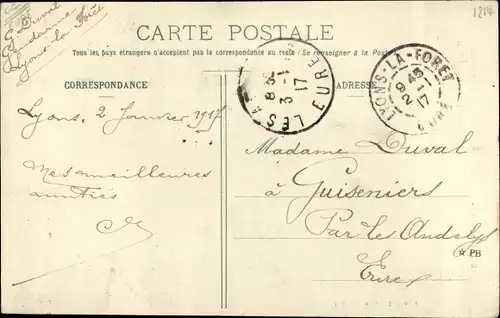 G. Duval
Gendarme
Lyons-la-Forêt
1214
CARTE POSTALE
Tous les pays étrangers n'acceptent pas la correspondance au recto (Se renseigner à la Poste)
CORRESPONDANCE
ADRESSE
8 35
3 -1
17
LES A
EURE
LYONS-LA-FORET
9 45
2 -1
17
EURE
Lyons, 2 Janvier 1917
Mes meilleures
amitiés
Madame Duval
à Guiseniers
Par les Andelys
Eure
☆ PB